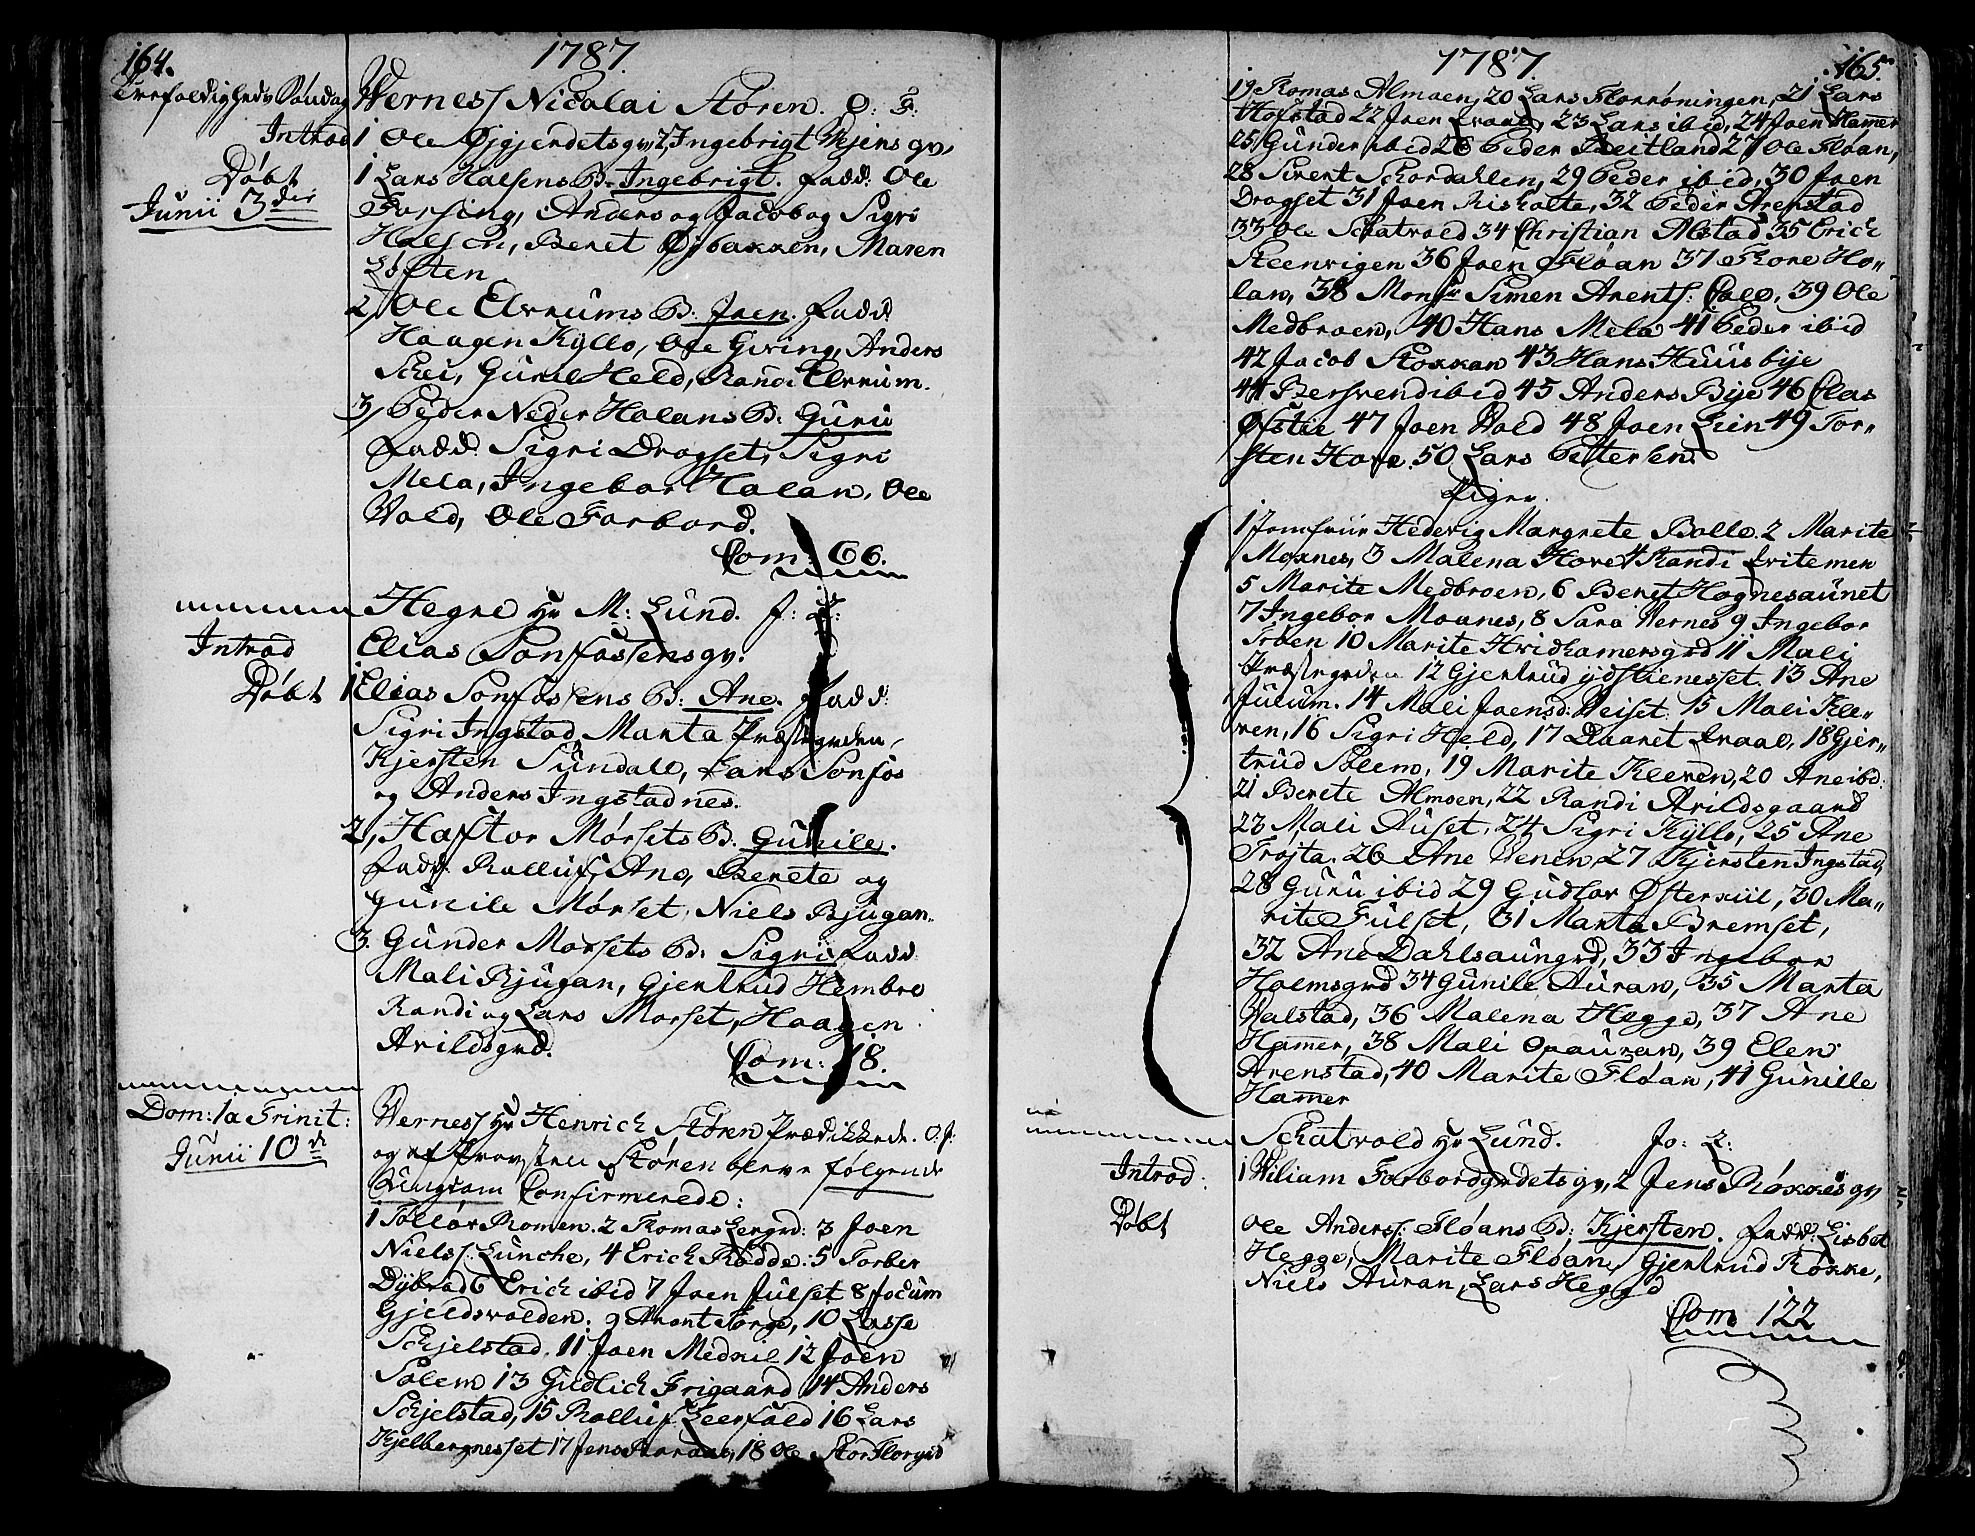 164.
1787.
Trefoldigheds Søndag
Wernes/ Nicolai Støren. O: F:
Introd
1 Ole Øjgjerdetsgv, 2, Ingebrigt Mejens gv,
Døbt
1 Lars Halsens B. Ingebrigt. Fadd: Ole
Junii 3die
Forsing, Anders og Jacob og Sigri
Halsen, Beret Øjbakken, Maren
Løften
2, Ole Elvrums B: Joen. Fadd:
Haagen Kyllo, Ole Gving, Anders
Schei, Guru Held, Randi Elvrum.
3, Peder Neder Holans B: Guru
Fadd: Sigri Dragset, Sigri
Mela, Ingebor Halan, Ole
Vold, Ole Forbord.
Com: 66.
Hegre Hr M: Lund. J: L:
Introd
Elias Sonfossensgv.
Døbt
1 Elias Sonfossens B: Ane. Fadd:
Sigri Ingstad, Marta Præstegrden,
Kjersten Sundall, Lars Sonfos
og Anders Ingstadnes.
2, Haftor Mørsets B. Gunile.
Fadd: Rolluf, Ane, Berete og
Gunile Mørset, Niels Bjugan.
3. Gunder Morsets B: Sigri Fadd:
Mali Bjugan, Gjertrud Hembre
Randi og Lars Morset, Haagen
Arildsgrd.
Com: 18.
Dom: 1a Trinit:
Junii 10de
Wernes/ Hr Henrich Støren Prædikkede. O. J:
og af Provsten Støren bleve følgende
Ungdom Confirmerede:
1 Tollør Romen. 2 Tomas Lergrd: 3 Joen
Niels/: Lunche, 4 Erich Rødde: 5 Torber
Dybvad 6 Erich ibid 7 Joen Julset 8 Jocum
Gjeldsvolden: 9 Arent Torge, 10 Lasse
Schjelstad. 11 Joen Medkil 12 Joen
Solem 13 Gudlich Frigaard 14 Anders
Schjelstad, 15 Rolluf Leerfald 16 Lars
Kjelbergnesset 17 Jens 18 Ole StorFlorgrd
1787.
165.
19 Tomas Almoen, 20 Lars Florrøningen, 21 Lars
Hofstad 22 Joen Evand, 23 Lars ibid, 24 Joen Hamer
25 Gunder ibid 26 Peder Breitland 27 Ole Floan,
28 Sivert Schordallen, 29 Peder ibid, 30 Joen
Dragset 31 Joen Risholte, 32 Peder Arenstad
33 Ole Schatvold 34 Christian Alstad 35 Erich
Steenvigen 36 Joen Floan 37 Tore Ho„
lan, 38 Monsr Simen Arents: Colo, 39 Ole
Medbroen, 40 Hans Mela 41 Peder ibid
42 Jacob Stokkan 43 Hans Huusbye
44 Bersvend ibid 45 Anders Bye 46 Clas
Øfstie 47 Joen Vold 48 Joen Lein 49 Tor„
sten Hove 50 Lars Petersen
Piger.
1 Jomfrue Hedevig Margrete Bolle. 2 Marite
Moxnes, 3 Malena Hove 4 Randi Evitemen
5 Marite Medbroen, 6 Beret Hognesaunet
7 Ingebor Moxnes, 8 Sara Vernes 9 Ingebor
Trøen 10 Marite Hvidhamersgrd 11 Mali
Præstegrden 12 Gjertrud ydstienesset. 13 Ane
Julum. 14 Mali Joensd: Veiset. 15 Mali Kle„
ven, 16 Sigri Held, 17 Maaret Evaae, 18 Gjer„
trud Solem, 19 Marite Kleven, 20 Ane ibd:
21 Berete Almoen, 22 Randi Arildsgaard
23 Mali Auset, 24 Sigri Kyllo, 25 Ane
Trøjta. 26 Ane Venen, 27 Kjersten Ingstad,
28 Guru ibid 29 Gudlov Østerkiil, 30 Ma„
rite Fulset, 31 Marta Bremset,
32 Ane Dahlsaungrd, 33 Ingebor
Holmsgrd 34 Gunile Auran, 35 Marta
Valstad, 36 Malena Hegge, 37 Ane
Hamer, 38 Mali Opauran, 39 Elen
Arenstad, 40 Marite Floan, 41 Gunille
Hamer
Schatvold Hr Lund. Jo: L:
Introd:
1 Wiliam Forbordgrdetsgv, 2 Jens Røkkes gv
Døbt
Ole Anders/: Floans B: Kjersten. Fadd: Lisbet
Hegge, Marite Floan, Gjertrud Røkke,
Niels Auran, Lars Heggd
Com 122